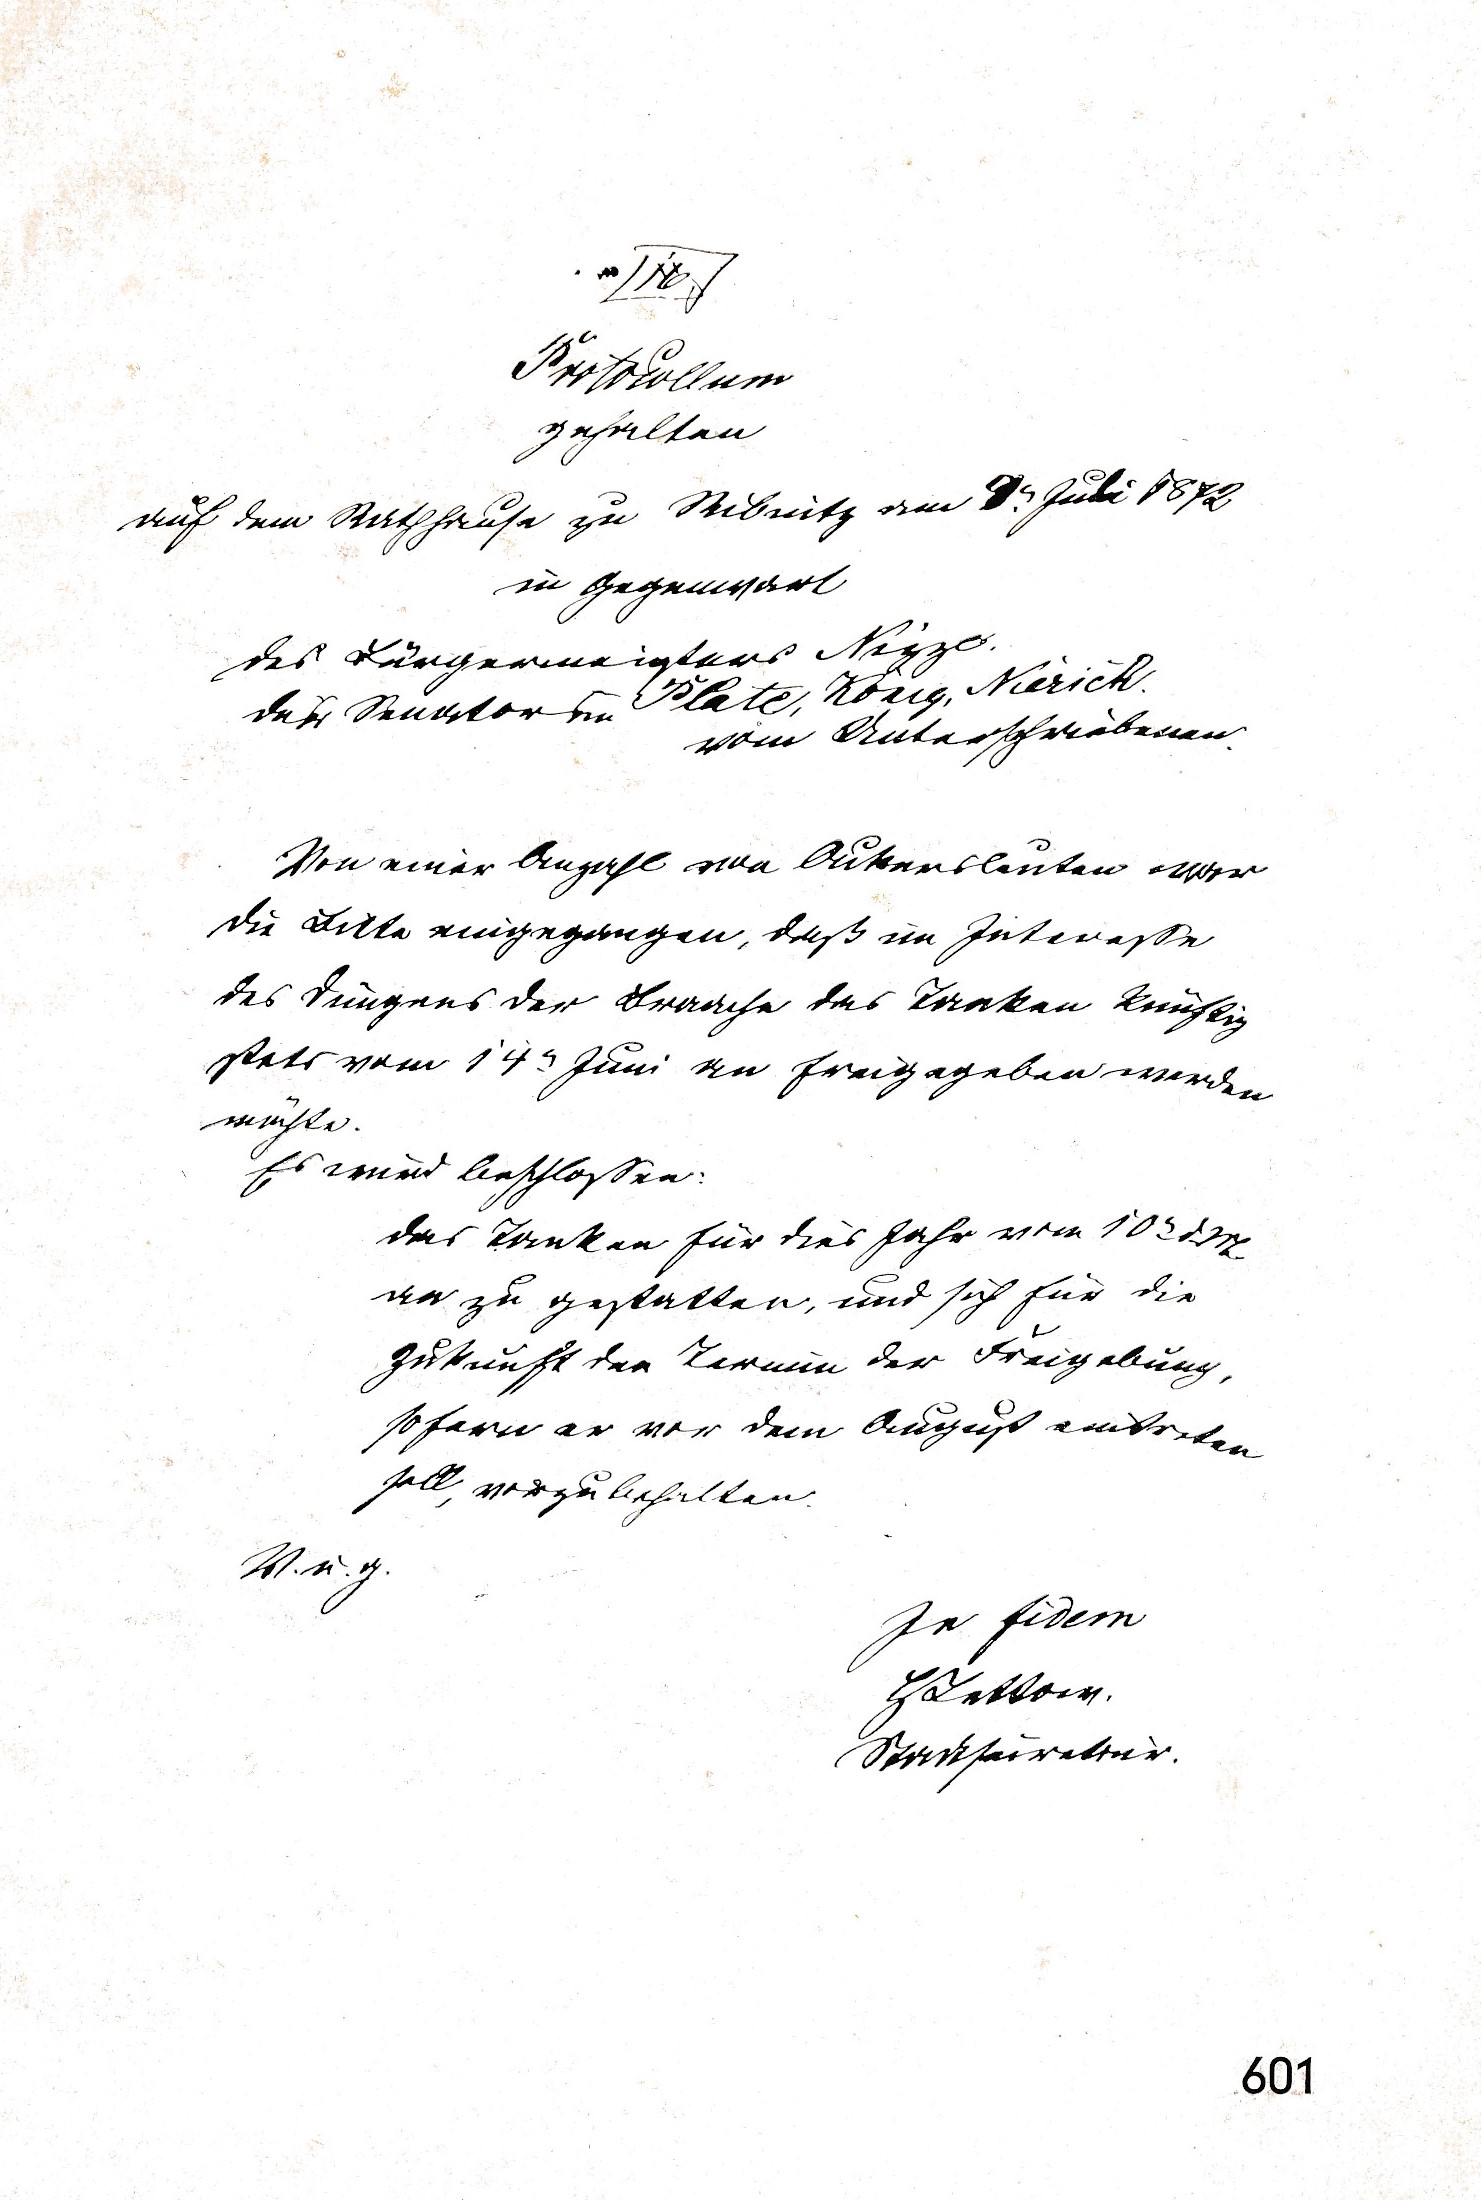 Protocollum
gehalten
auf dem Rathhause zu Ribnitz am 8n Juli 1872
in Gegenwart
des Bürgermeisters
der Senatoren Plate, König, Nierich.
vom Unterschriebenen.
Von einer Anzahl von Ackersleuten war
die Bitte eingegangen, daß im Interesse
des Düngens der Braache das Tanken künftig
stets vom 14n Juni an freigegeben werden
möchte.
Es wird beschlossen:
das Tanken für dies Jahr vom 10n d. M.
an zu gestatten, und sich für die
Zukunft den Termin der Freigebung,
sofern er vor dem August eintreten
soll, vorzubehalten.
V. u. g.
In fidem
Stadtsecretair.
601